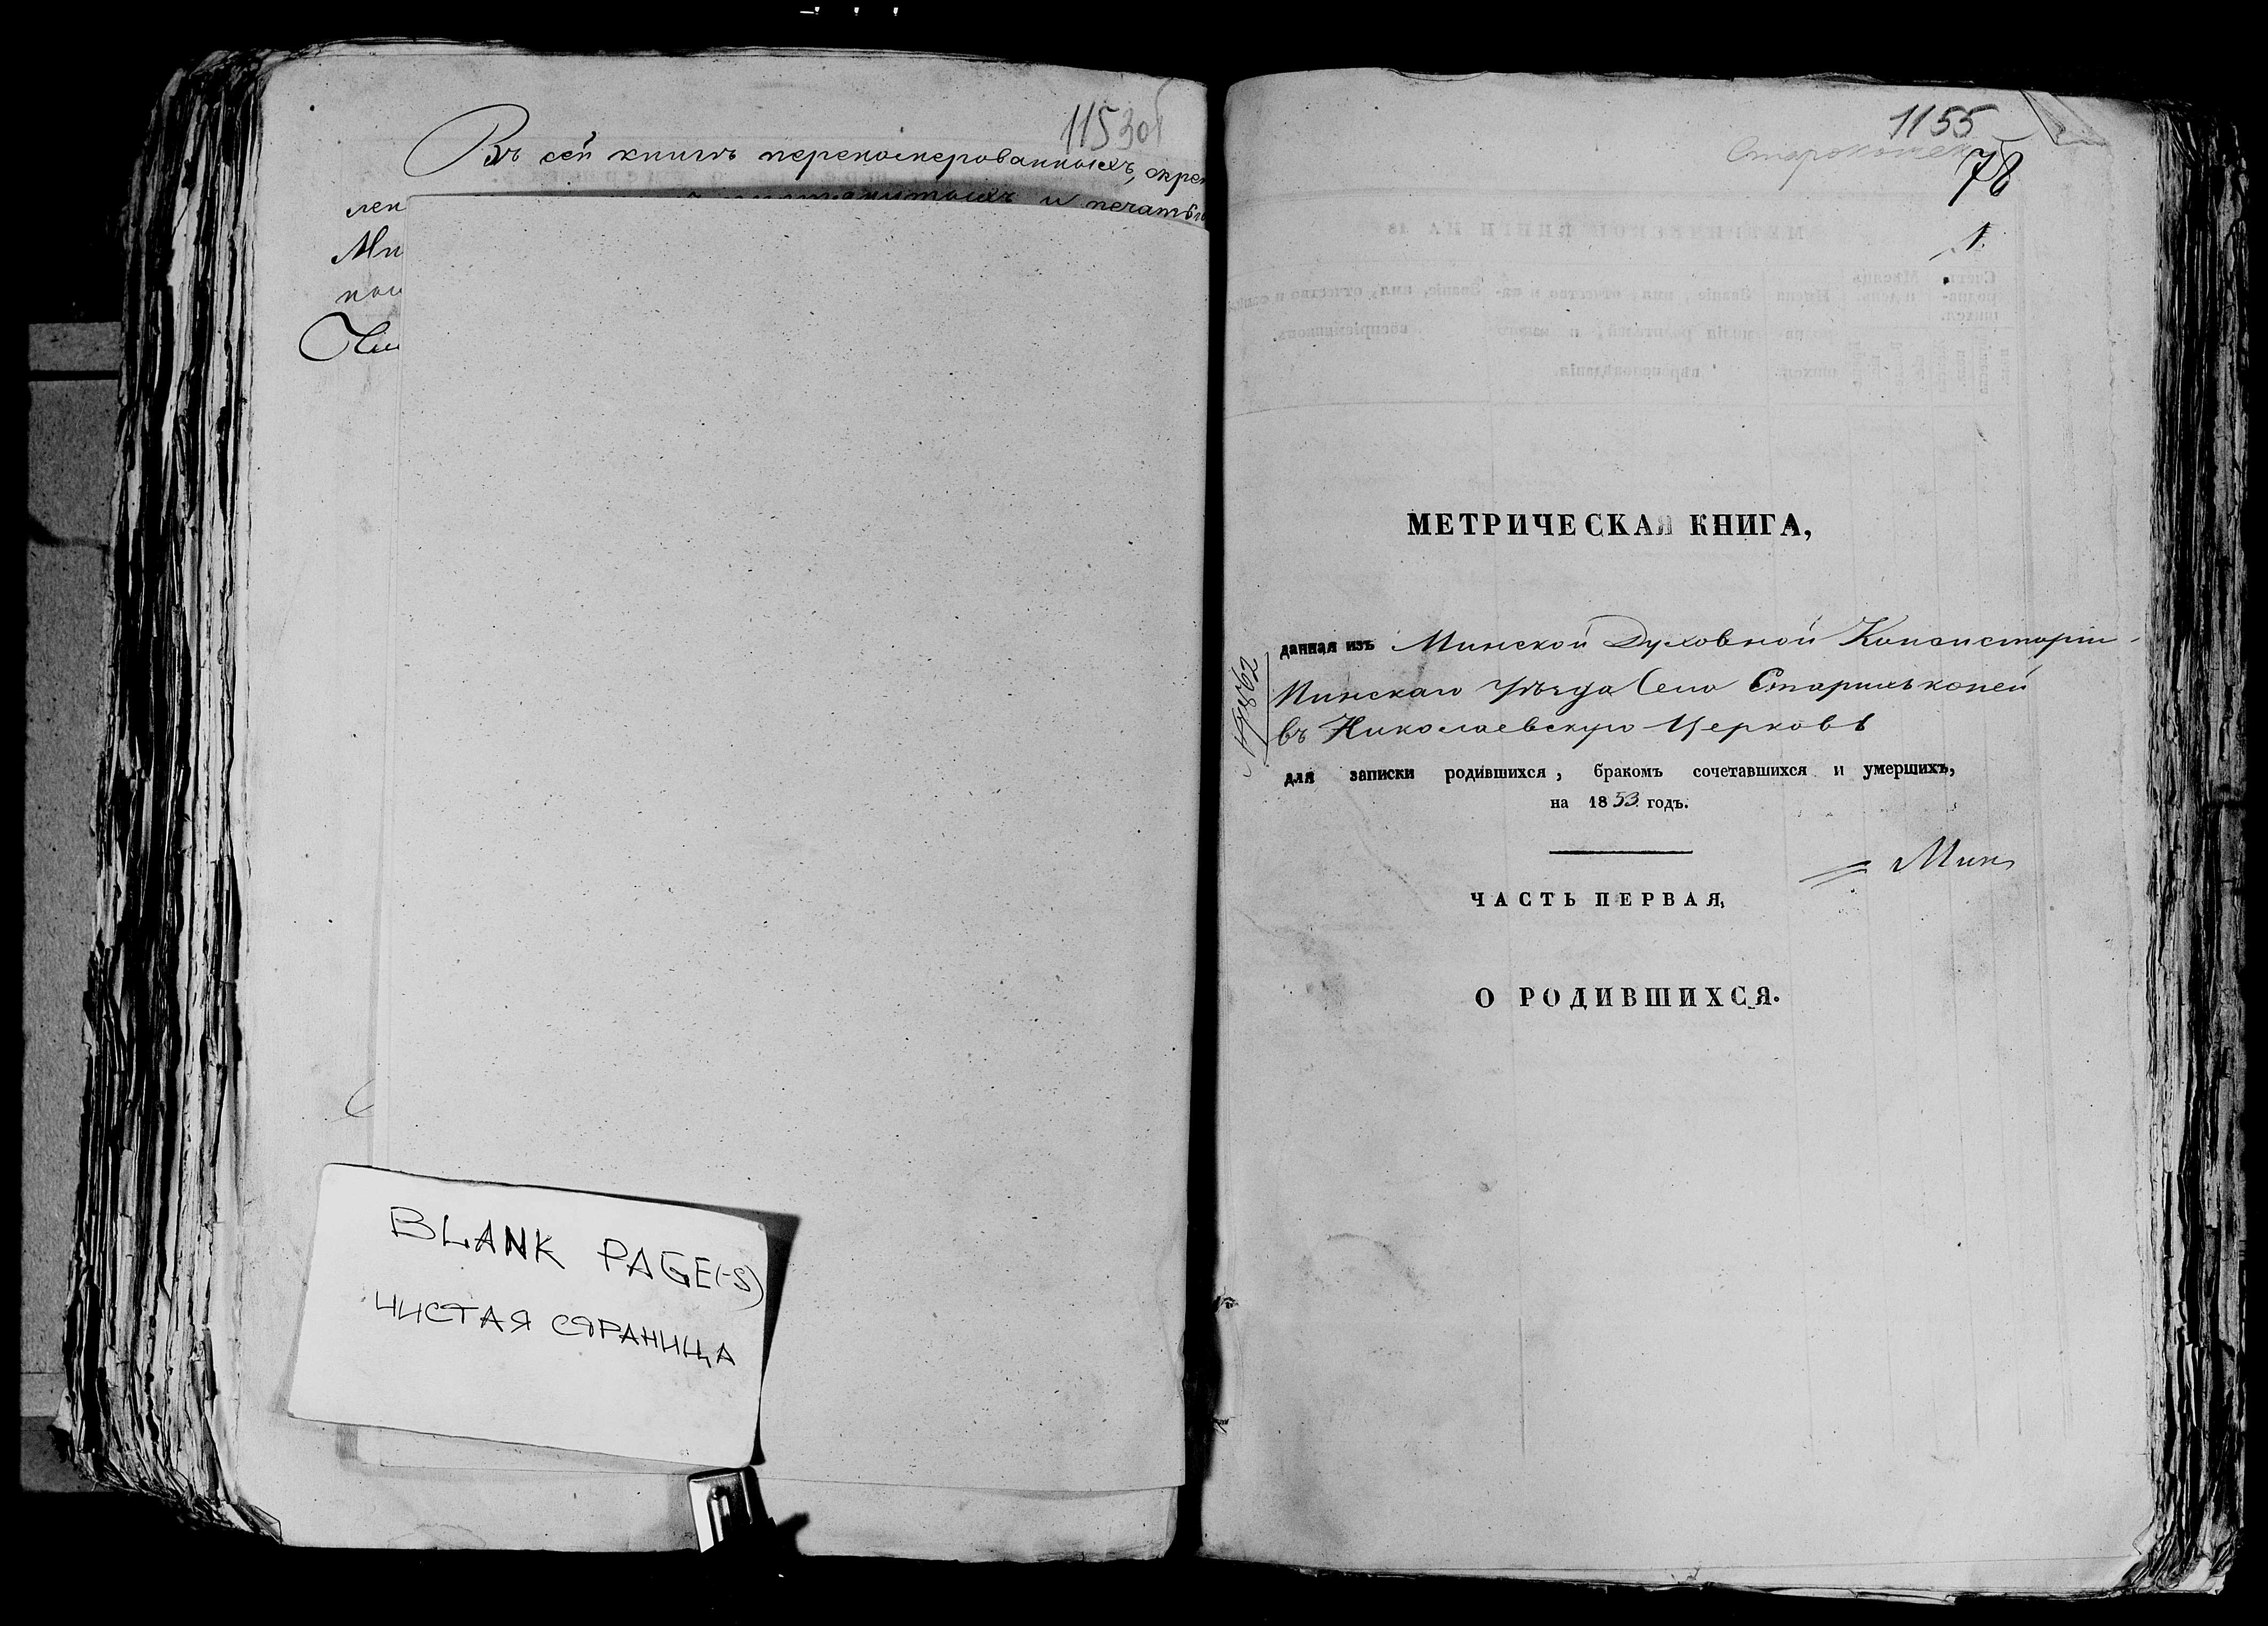 1153об
Въ сей книгѣ переномерованныхъ, скреп
лен и печатью
Ми
пол
BLANK PAGE(-S)
ЧИСТАЯ СТРАНИЦА
1155
Староконск
78
1.
МЕТРИЧЕСКАЯ КНИГА,
данная изъ Минской Духовной Консисторіи
Пинскаго уѣзда Села Старихъ коней
въ Николаевскую Церковь
№ 7862
для записки родившихся, бракомъ сочетавшихся и умершихъ,
на 1853 годъ.
Мин
ЧАСТЬ ПЕРВАЯ,
О РОДИВШИХСЯ.